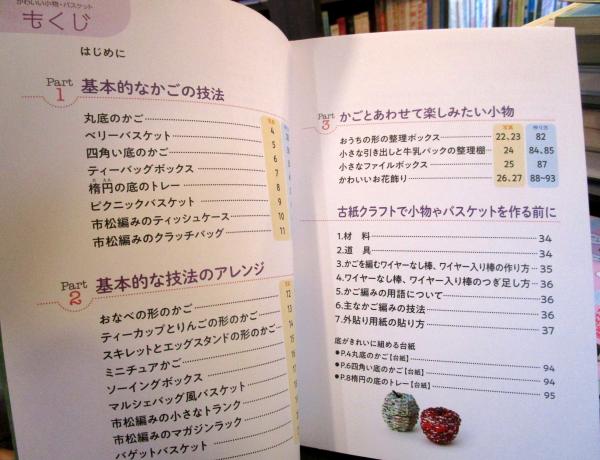 かわいい小物・バスケット
もくじ
はじめに
Part 1 基本的なかごの技法
写真
丸底のかご 4
ベリーバスケット 5
四角い底のかご 6
ティーバッグボックス 7
楕円の底のトレー 8
ピクニックバスケット 9
市松編みのティッシュケース 10
市松編みのクラッチバッグ 11
Part 2 基本的な技法のアレンジ
写真
おなべの形のかご 12
ティーカップとりんごの形のかご
スキレットとエッグスタンドの形のかご 14
ミニチュアかご
ソーイングボックス
マルシェバッグ風バスケット
市松編みの小さなトランク
市松編みのマガジンラック
バゲットバスケット
Part 3 かごとあわせて楽しみたい小物
写真 作り方
おうちの形の整理ボックス 22、23 82
小さな引き出しと牛乳パックの整理棚 24 84、85
小さなファイルボックス 25 87
かわいいお花飾り 26、27 88~93
古紙クラフトで小物やバスケットを作る前に
1.材 料 34
2.道 具 34
3.かごを編むワイヤーなし棒、ワイヤー入り棒の作り方 35
4.ワイヤーなし棒、ワイヤー入り棒のつぎ足し方 36
5.かご編みの用語について 36
6.主なかご編みの技法 36
7.外貼り用紙の貼り方 37
底がきれいに組める台紙
●P.4丸底のかご【台紙】 94
●P.6四角い底のかご【台紙】 94
●P.8楕円の底のトレー【台紙】 95